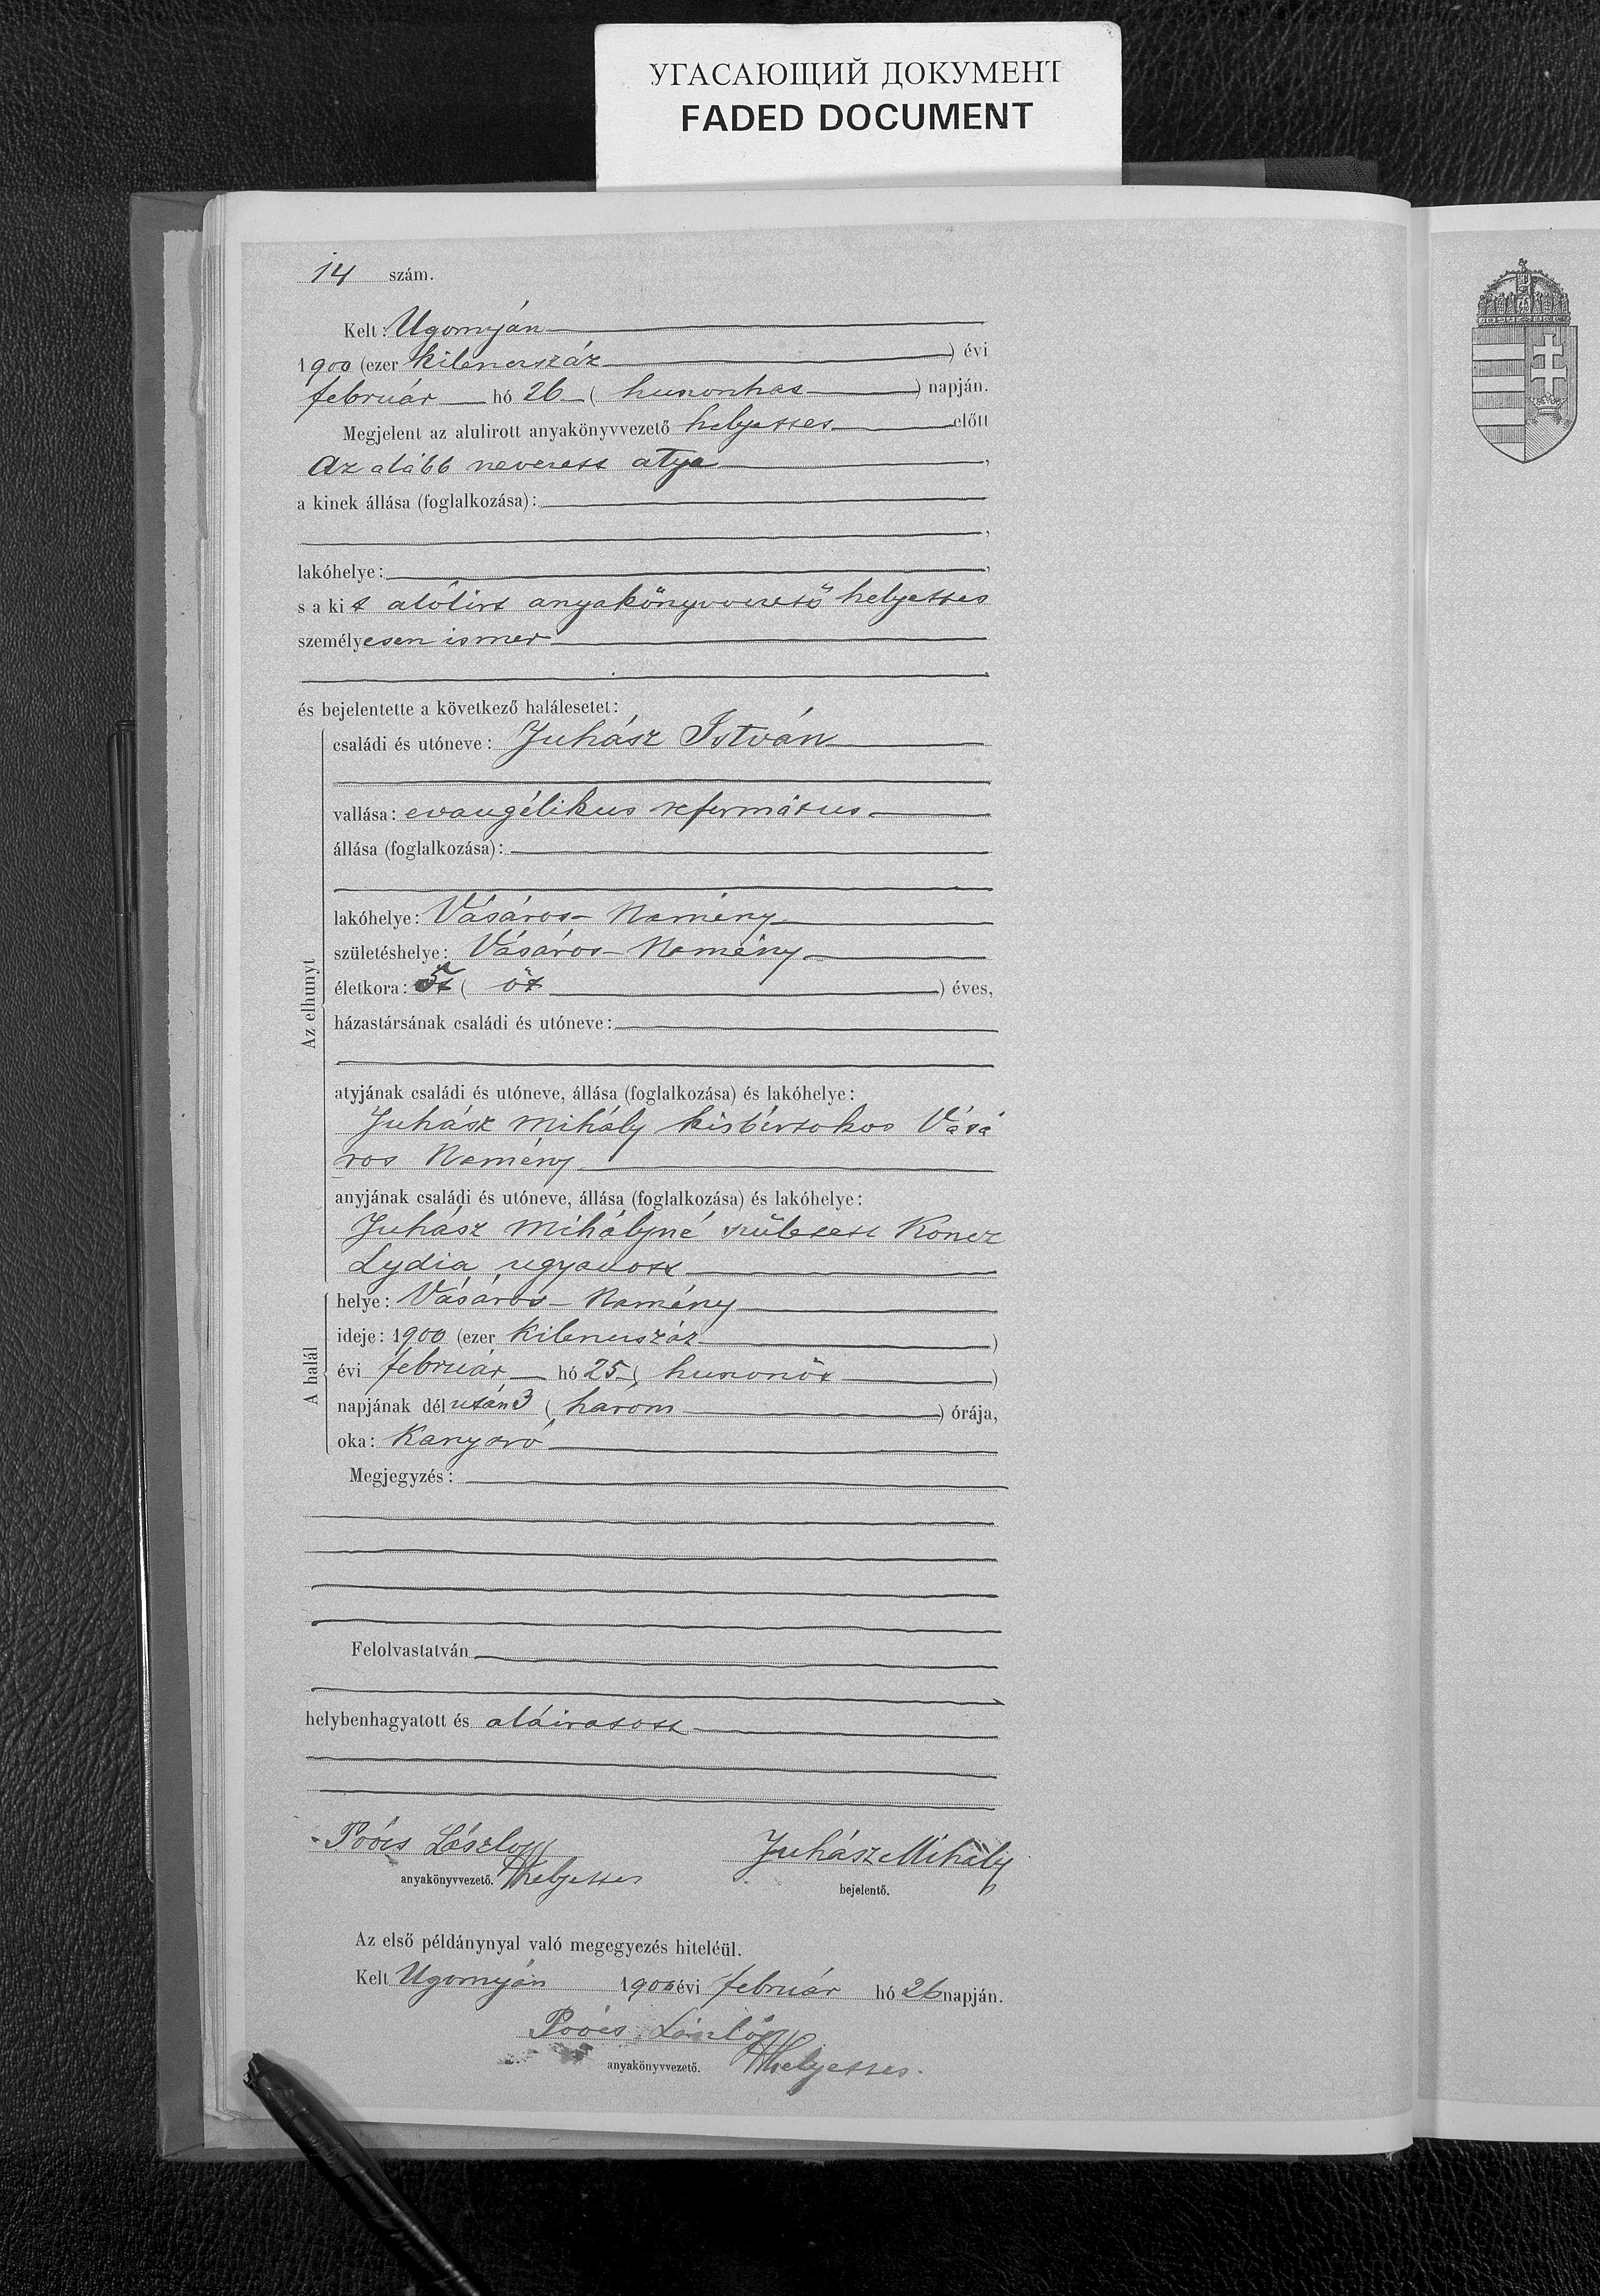 УГАСАЮЩИЙ ДОКУМЕНТ
FADED DOCUMENT
14 szám.
Kelt: Ugornyán
1900 (ezer kilenczszáz) évi
február hó 26 (huszonhat) napján.
Megjelent az alulirott anyakönyvvezető helyettes előtt
Az alább nevezett atya,
a kinek állása (foglalkozása):
,
lakóhelye: ,
s a kit alólirt anyakönyvvezető helyettes
személyesen ismer
és bejelentette a következő halálesetet:
Az elhunyt
családi és utóneve: Juhász István
vallása: evangélikus református
állása (foglalkozása):
lakóhelye: Vásáros-Namény
születéshelye: Vásáros-Namény
életkora: 5 (öt) éves,
házastársának családi és utóneve:
atyjának családi és utóneve, állása (foglalkozása) és lakóhelye:
Juhász Mihály kisbirtokos Vásá
ros Namény
anyjának családi és utóneve, állása (foglalkozása) és lakóhelye:
Juhász Mihályné született Koncz
Lydia ugyanott
A halál
helye: Vásáros-Namény
ideje: 1900 (ezer kilenczszáz)
évi február hó 25 (huszonöt)
napjának délután 3 (három) órája,
oka: Kanyaró
Megjegyzés:
Felolvastatván
helybenhagyatott és aláiratott
László Juhász Mihály
anyakönyvvezető. helyettes bejelentő.
Az első példánynyal való megegyezés hiteléül.
Kelt Ugornyán 1900 évi február hó 26 napján.
László
anyakönyvvezető. helyettes.